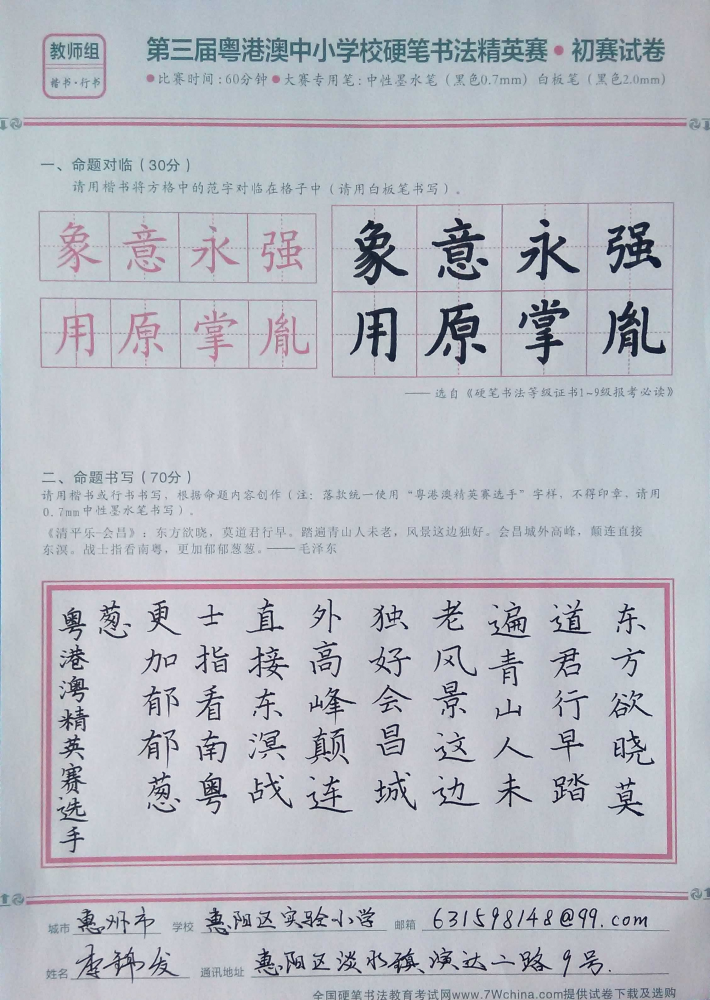 教师组
楷书·行书
第三届粤港澳中小学校硬笔书法精英赛·初赛试卷
●比赛时间:60分钟●大赛专用笔:中性墨水笔(黑色0.7mm) 白板笔(黑色2.0mm)
一、命题对临(30分)
请用楷书将方格中的范字对临在格子中(请用白板笔书写)。
象意永强
用原掌胤
象意永强
用原掌胤
——选自《硬笔书法等级证书1~9级报考必读》
二、命题书写(70分)
请用楷书或行书书写,根据命题内容创作(注:落款统一使用“粤港澳精英赛选手”字样,不得印章,请用
0.7mm中性墨水笔书写)。
《清平乐-会昌》:东方欲晓,莫道君行早。踏遍青山人未老,风景这边独好。会昌城外高峰,颠连直接
东溟。战士指看南粤,更加郁郁葱葱。——毛泽东
东方欲晓莫
道君行早踏
遍青山人未
老风景这边
独好会昌城
外高峰颠连
直接东溟战
士指看南粤
更加郁郁葱
葱
粤港澳精英赛选手
城市 惠州市 学校 惠阳区实验小学 邮箱 631598148@99.com
姓名 李锦发 通讯地址 惠阳区淡水镇演达二路9号.
全国硬笔书法教育考试网www.7Wchina.com提供试卷下载及选购